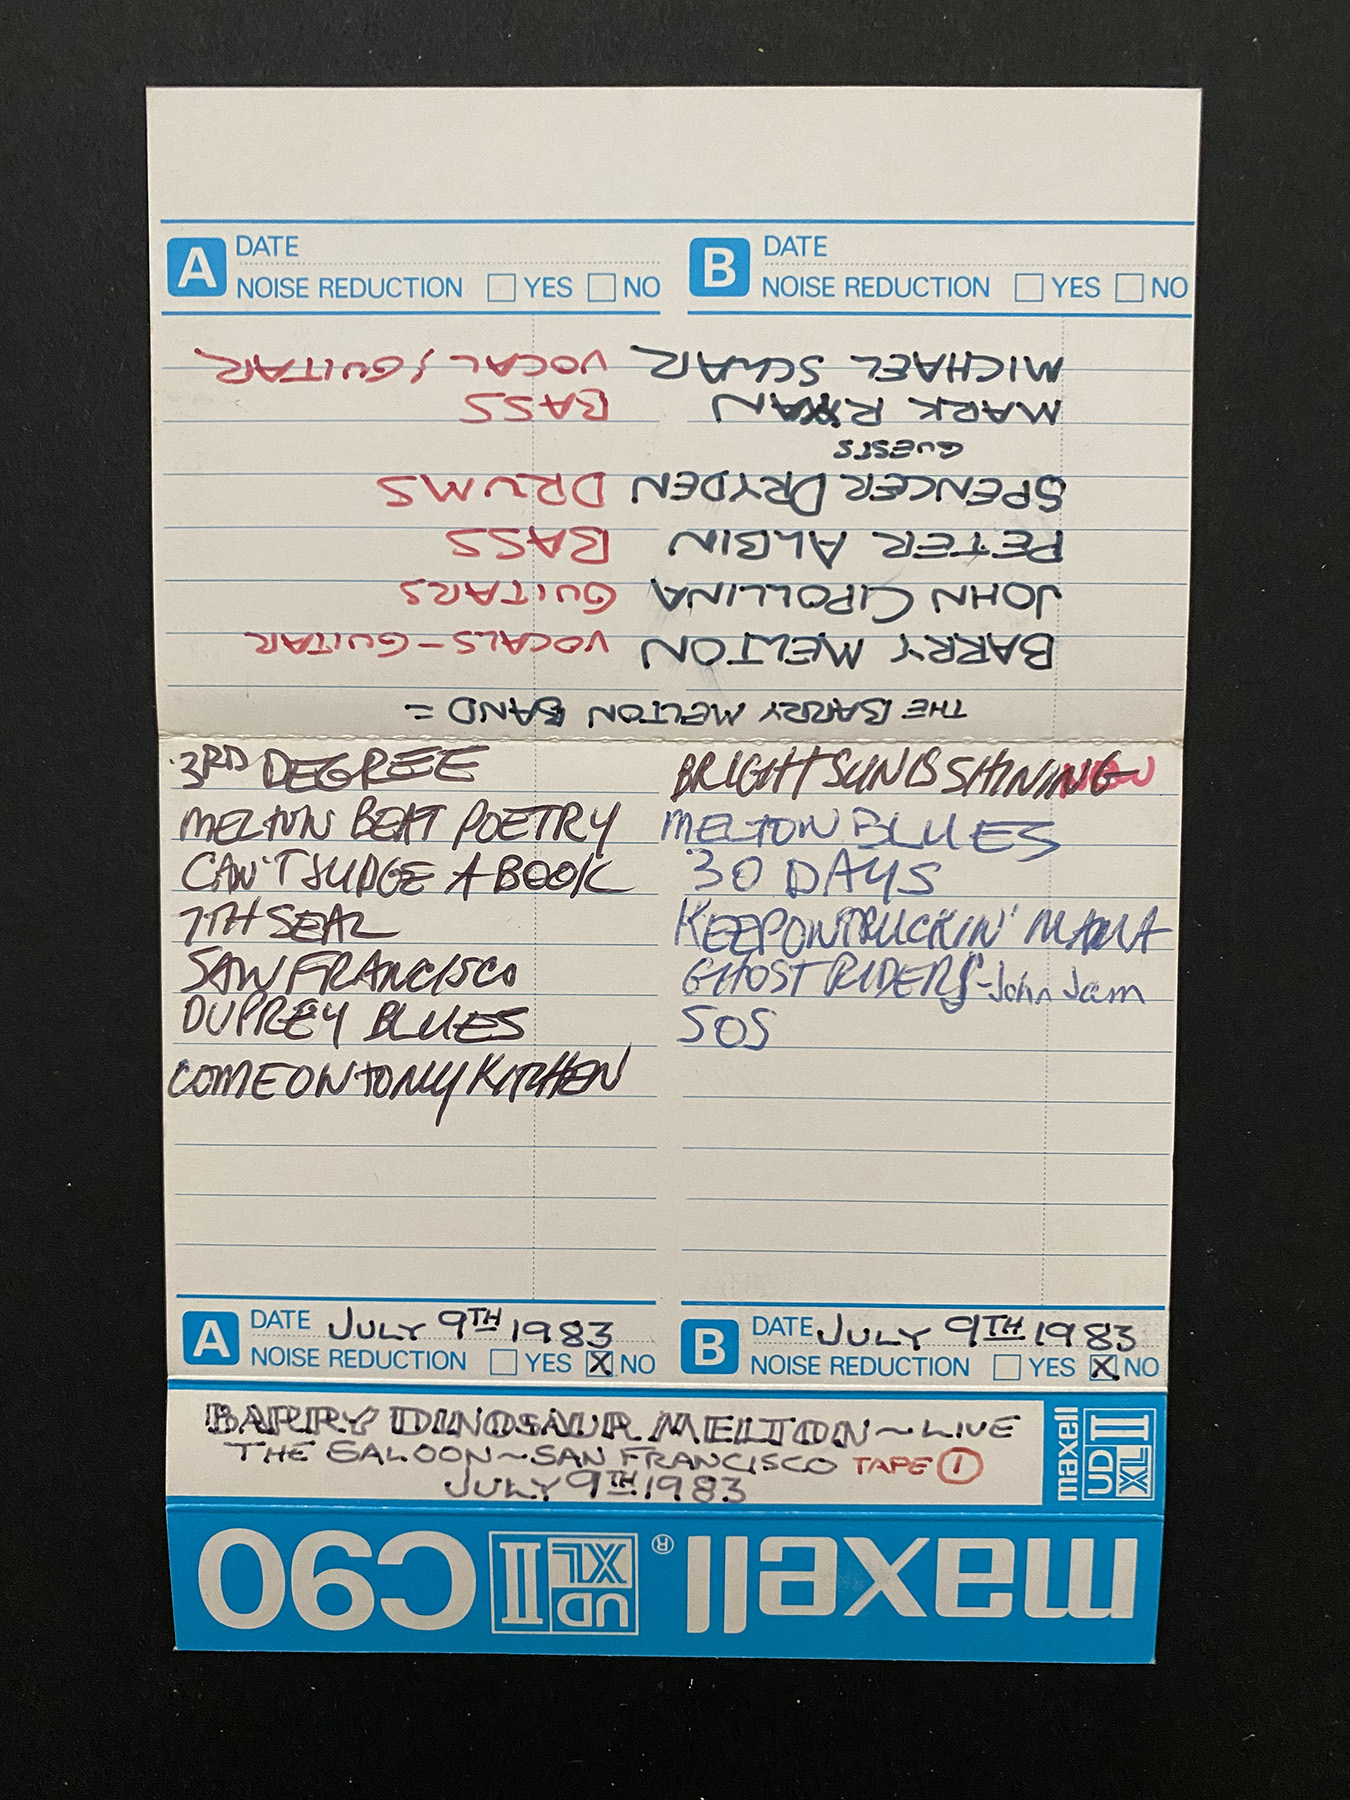 A DATE
NOISE REDUCTION YES NO
B DATE
NOISE REDUCTION YES NO
THE BARRY MELTON BAND =
BARRY MELTON VOCALS - GUITAR
JOHN CIPOLLINA GUITARS
PETER ALBIN BASS
SPENCER DRYDEN DRUMS
GUESTS
MARK RYAN BASS
MICHAEL VOCAL / GUITAR
3RD DEGREE
MELTON BEAT POETRY
CAN'T JUDGE A BOOK
7TH SEAL
SAW FRANCISCO
DUPREY BLUES
COME ON TO MY KITCHEN
BRIGHT SUN IS SHINING
MELTON BLUES
30 DAYS
KEEP ON TRUCKIN' MAMA
GHOST RIDERS - John Jam
SOS
A DATE JULY 9TH 1983
NOISE REDUCTION YES X NO
B DATE JULY 9TH 1983
NOISE REDUCTION YES X NO
BARRY DINOSAUR MELTON ~ LIVE
THE SALOON ~ SAN FRANCISCO TAPE 1
JULY 9TH 1983
maxell UD XL II
maxell® UD XL II C90